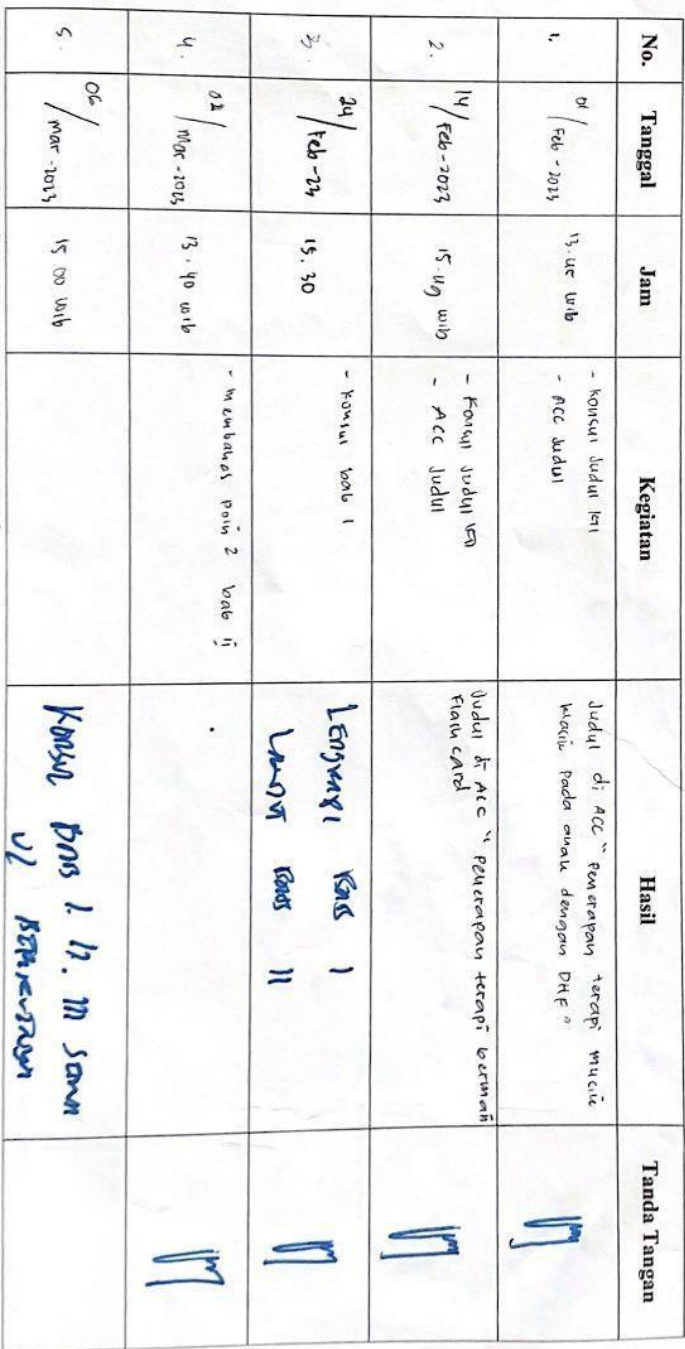 No. Tanggal Jam Kegiatan Hasil Tanda Tangan
1. 01/Feb-2023 13.45 wib
- Konsul Judul KTI
- ACC Judul
Judul di ACC "penerapan terapi mucic
pada anak dengan DHF"
2. 14/Feb-2023 15.49 wib
- Konsul Judul
- ACC Judul
Judul di ACC "penerapan terapi bermain
Flash card
3. 24/Feb-23 15.30
- Konsul bab 1
Lengkapi BAB I
Lanjut BAB II
4. 02/Mar-2023 13.40 wib
- membahas poin 2 bab ii
5. 06/mar-2023 15.00 wib
Konsul BAB I. II. III